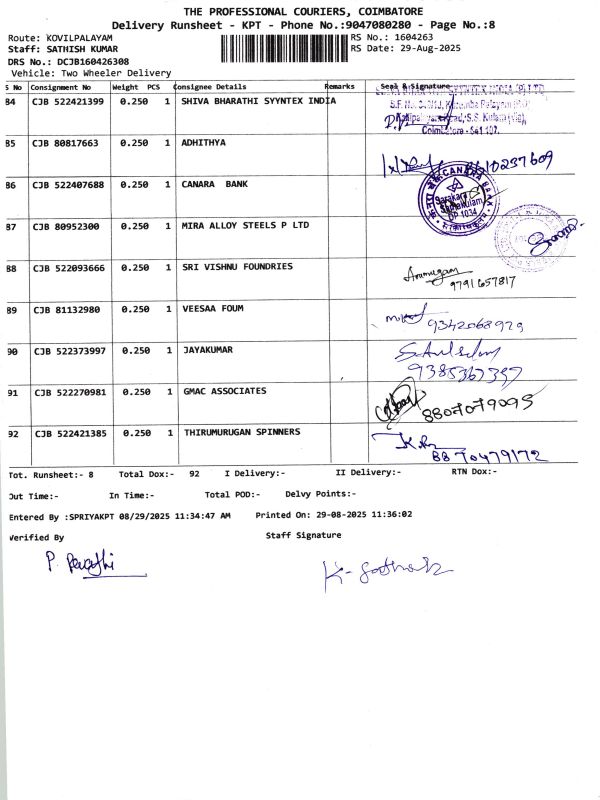 THE PROFESSIONAL COURIERS, COIMBATORE
Delivery Runsheet - KPT - Phone No.:9047080280 - Page No.:8
Route: KOVILPALAYAM RS No.: 1604263
Staff: SATHISH KUMAR RS Date: 29-Aug-2025
DRS No.: DCJB160426308
Vehicle: Two Wheeler Delivery
S No Consignment No Weight PCS Consignee Details Remarks Seal & Signature
84 CJB 522421399 0.250 1 SHIVA BHARATHI SYYNTEX INDIA
Coimbatore - 641 107.
85 CJB 80817663 0.250 1 ADHITHYA
86 CJB 522407688 0.250 1 CANARA BANK
CANARA BANK
Sarakar
Samakulam
DP 1034
87 CJB 80952300 0.250 1 MIRA ALLOY STEELS P LTD
88 CJB 522093666 0.250 1 SRI VISHNU FOUNDRIES Arumugam
9791657817
89 CJB 81132980 0.250 1 VEESAA FOUM 9342068929
90 CJB 522373997 0.250 1 JAYAKUMAR
9385367357
91 CJB 522270981 0.250 1 GMAC ASSOCIATES 8807079095
92 CJB 522421385 0.250 1 THIRUMURUGAN SPINNERS
8870479172
Tot. Runsheet:- 8 Total Dox:- 92 I Delivery:- II Delivery:- RTN Dox:-
Out Time:- In Time:- Total POD:- Delvy Points:-
Entered By :SPRIYAKPT 08/29/2025 11:34:47 AM Printed On: 29-08-2025 11:36:02
Verified By Staff Signature